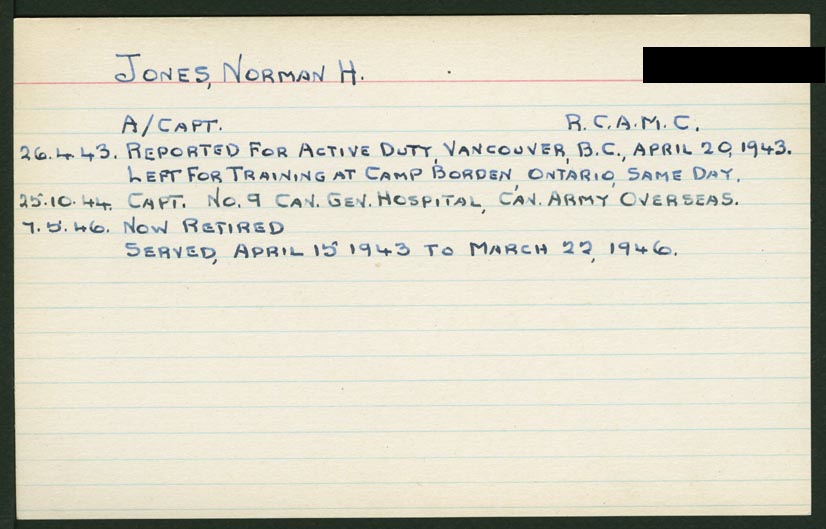 JONES, NORMAN H.
A/CAPT. R.C.A.M.C.
26.4.43. REPORTED FOR ACTIVE DUTY, VANCOUVER, B.C., APRIL 20, 1943.
LEFT FOR TRAINING AT CAMP BORDEN, ONTARIO, SAME DAY.
25.10.44. CAPT. NO. 9 CAN. GEN. HOSPITAL, CAN. ARMY OVERSEAS.
7.5.46. NOW RETIRED
SERVED, APRIL 15 1943 TO MARCH 22, 1946.